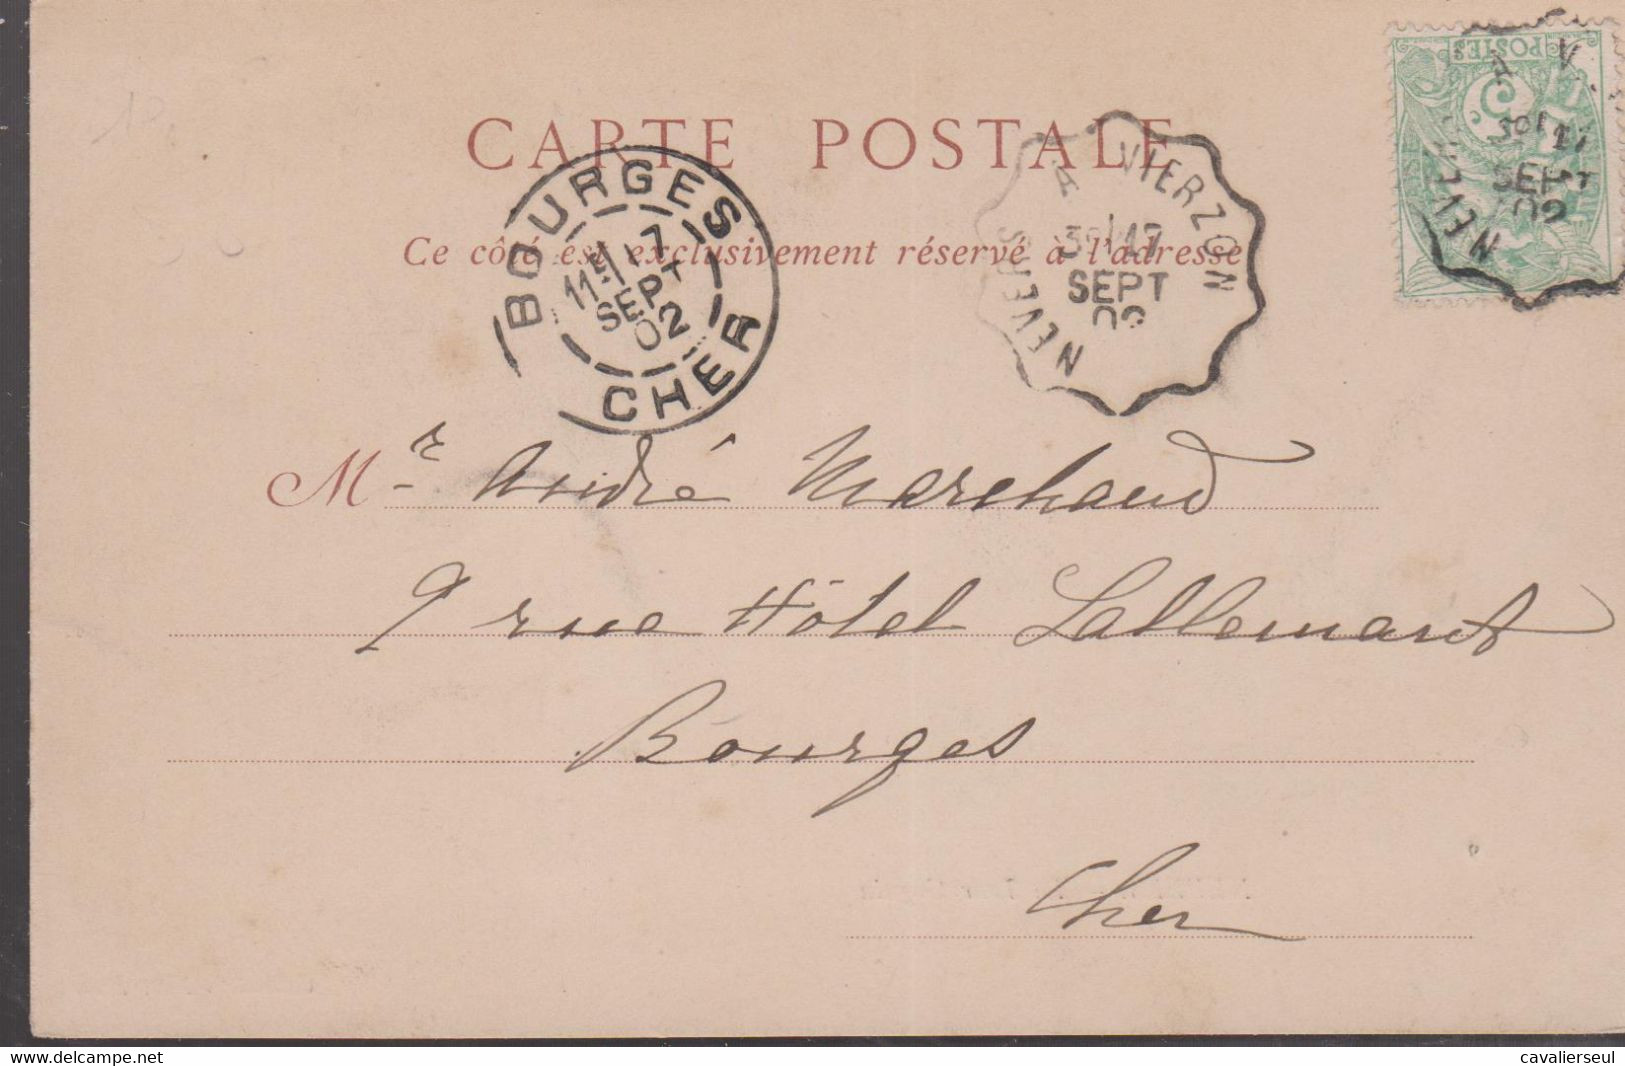 CARTE POSTALE
Ce côté est exclusivement réservé à l'adresse
BOURGES
SEPT
02
CHER
VIERZON A NEVERS
3e 17
SEPT
02
POSTES
5
A V
NEVER
3e 17
SEPT
02
Mr André Marchand
9 rue Hôtel Lallemant
Bourges
Cher
cavalierseul